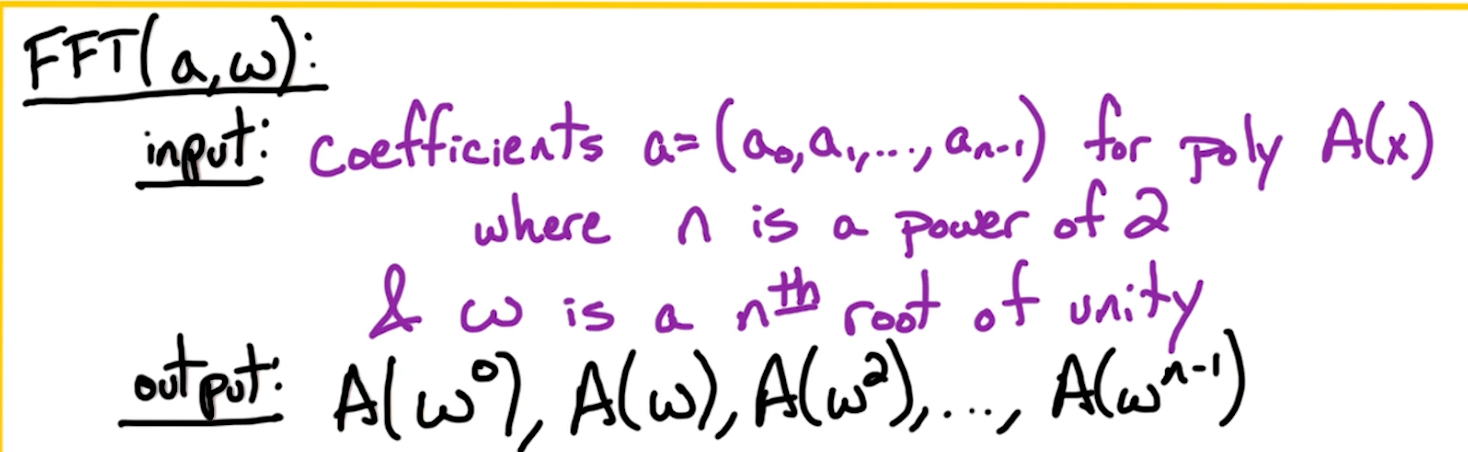 FFT(a,ω):
input: coefficients a=(a₀,a₁,...,aₙ₋₁) for poly A(x)
where n is a power of 2
& ω is a nᵗʰ root of unity
output: A(ω⁰), A(ω), A(ω²),..., A(ωⁿ⁻¹)